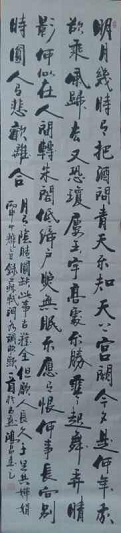 明月幾時有把酒問青天不知天上宮闕今夕是何年我
欲乘風歸去又恐瓊樓玉宇高處不勝寒起舞弄清
影何似在人間轉朱閣低綺戶照無眠不應有恨何事長向別
時圓人有悲歡離合
月有陰晴圓缺此事古難全但願人長久千里共嬋娟